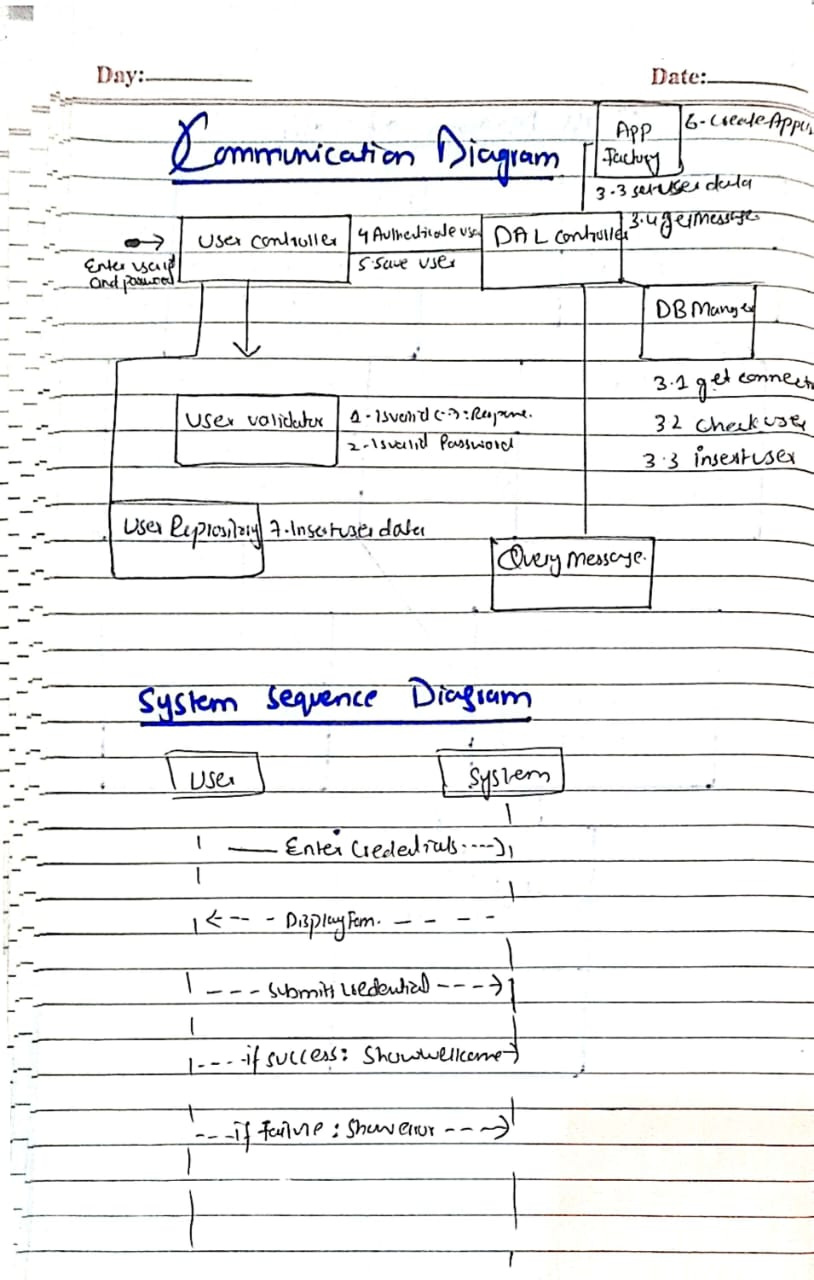 Day:
Date:
Communication Diagram
App
Factory
6-Create App
3.3 set user data
3.4 get Message
User Controller
4 Authenticate use
5. Save User
DAL Controller
Enter userid
and password
DB Manger
3.1 get connect
3.2 Check user
3.3 insert user
User validator
1-Isvalid (-):
2-Isvalid Password
User Repriository
7-Insert user data
Query Message.
System Sequence Diagram
User
System
Enter Credentials
Display Form.
Submitt Credential
if success: Show wellcome
if Failure: Show error